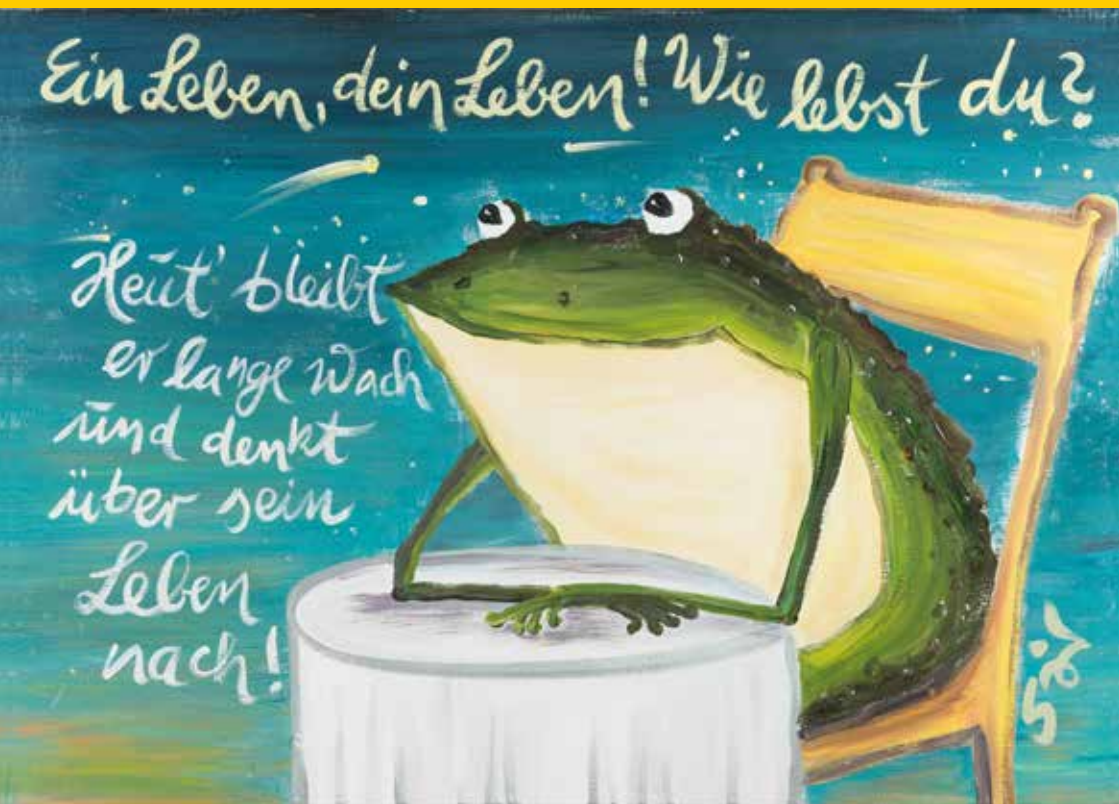 Ein Leben, dein Leben! Wie lebst du?
Heut' bleibt
er lange wach
und denkt
über sein
Leben
nach!